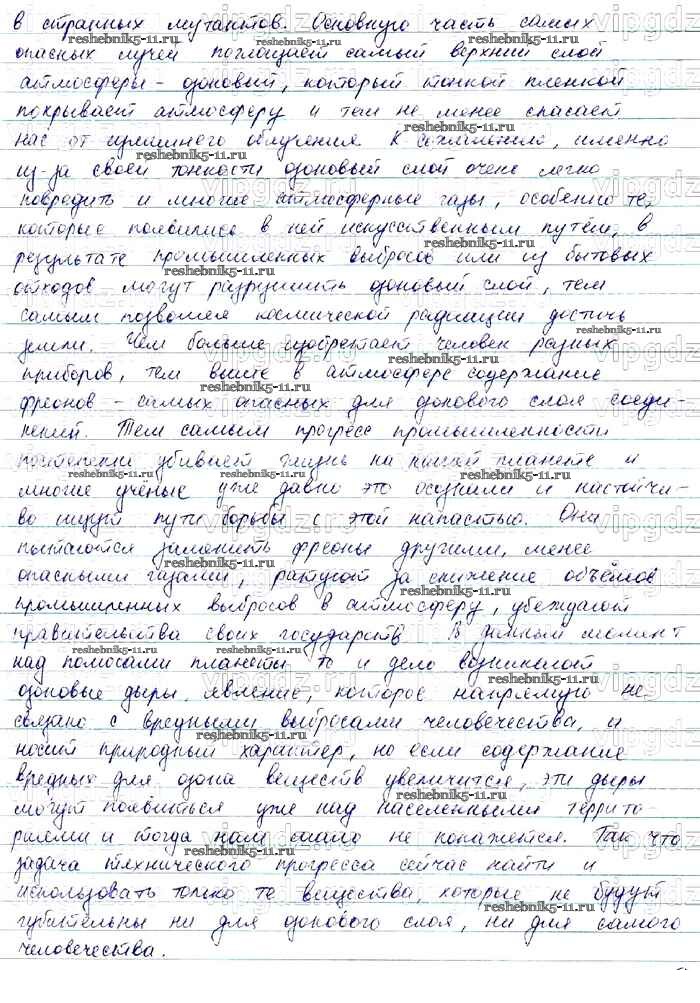 в странных мутантов. Основную часть самых
опасных лучей поглощает самый верхний слой
атмосферы – озоновый, который тонкой пленкой
покрывает атмосферу и тем не менее спасает
нас от излишнего облучения. К сожалению, именно
из-за своей тонкости озоновый слой очень легко
повредить и многие атмосферные газы, особенно те,
которые появились в ней искусственным путём, в
результате промышленных выбросов или из бытовых
отходов могут разрушить озоновый слой, тем
самым позволяя космической радиации достичь
земли. Чем больше изобретает человек разных
приборов, тем выше в атмосфере содержание
фреонов – самых опасных для озонового слоя соеди-
нений. Тем самым прогресс промышленности
постепенно убивает жизнь на нашей планете и
многие учёные уже давно это осознали и настойчи-
во ищут пути борьбы с этой напастью. Они
пытаются заменить фреоны другими, менее
опасными газами, ратуют за снижение объёмов
промышленных выбросов в атмосферу, убеждают
правительства своих государств. В данный момент
над полюсами планеты то и дело возникают
озоновые дыры, явление, которое напрямую не
связано с вредными выбросами человечества, и
носит природный характер, но если содержание
вредных для озона веществ увеличится, эти дыры
могут появиться уже над населенными террито-
риями и тогда нам мало не покажется. Так что
задача технического прогресса сейчас найти и
использовать только те вещества, которые не будут
губительны ни для озонового слоя, ни для самого
человечества.